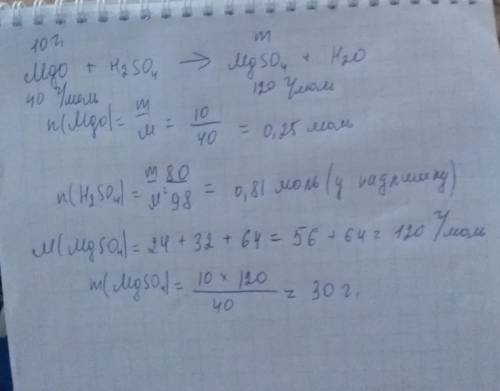 10 г m
MgO + H₂SO₄ → MgSO₄ + H₂O
40 г/моль 120 г/моль
n(MgO) = m/M = 10/40 = 0,25 моль
n(H₂SO₄) = m/M = 80/98 = 0,81 моль (у надлишку)
M(MgSO₄) = 24 + 32 + 64 = 56 + 64 = 120 г/моль
m(MgSO₄) = 10 × 120 / 40 = 30 г.